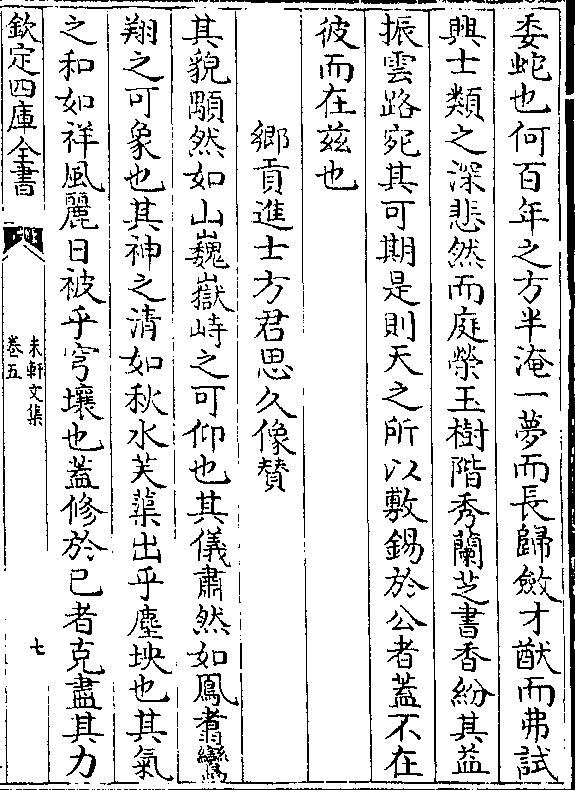 委蛇也何百年之方半淹一夢而長歸斂才猷而弗試
興士類之深悲然而庭榮玉樹階秀蘭芝書香紛其益
振雲路宛其可期是則天之所以敷錫於公者蓋不在
彼而在兹也
鄉貢進士方君思久像賛
其貌顒然如山巍嶽峙之可仰也其儀肅然如鳳翥鸞
翔之可象也其神之清如秋水芙蕖出乎塵坱也其氣
之和如祥風麗日被乎穹壤也蓋修於已者克盡其力
欽定四庫全書
未軒文集
卷五
七